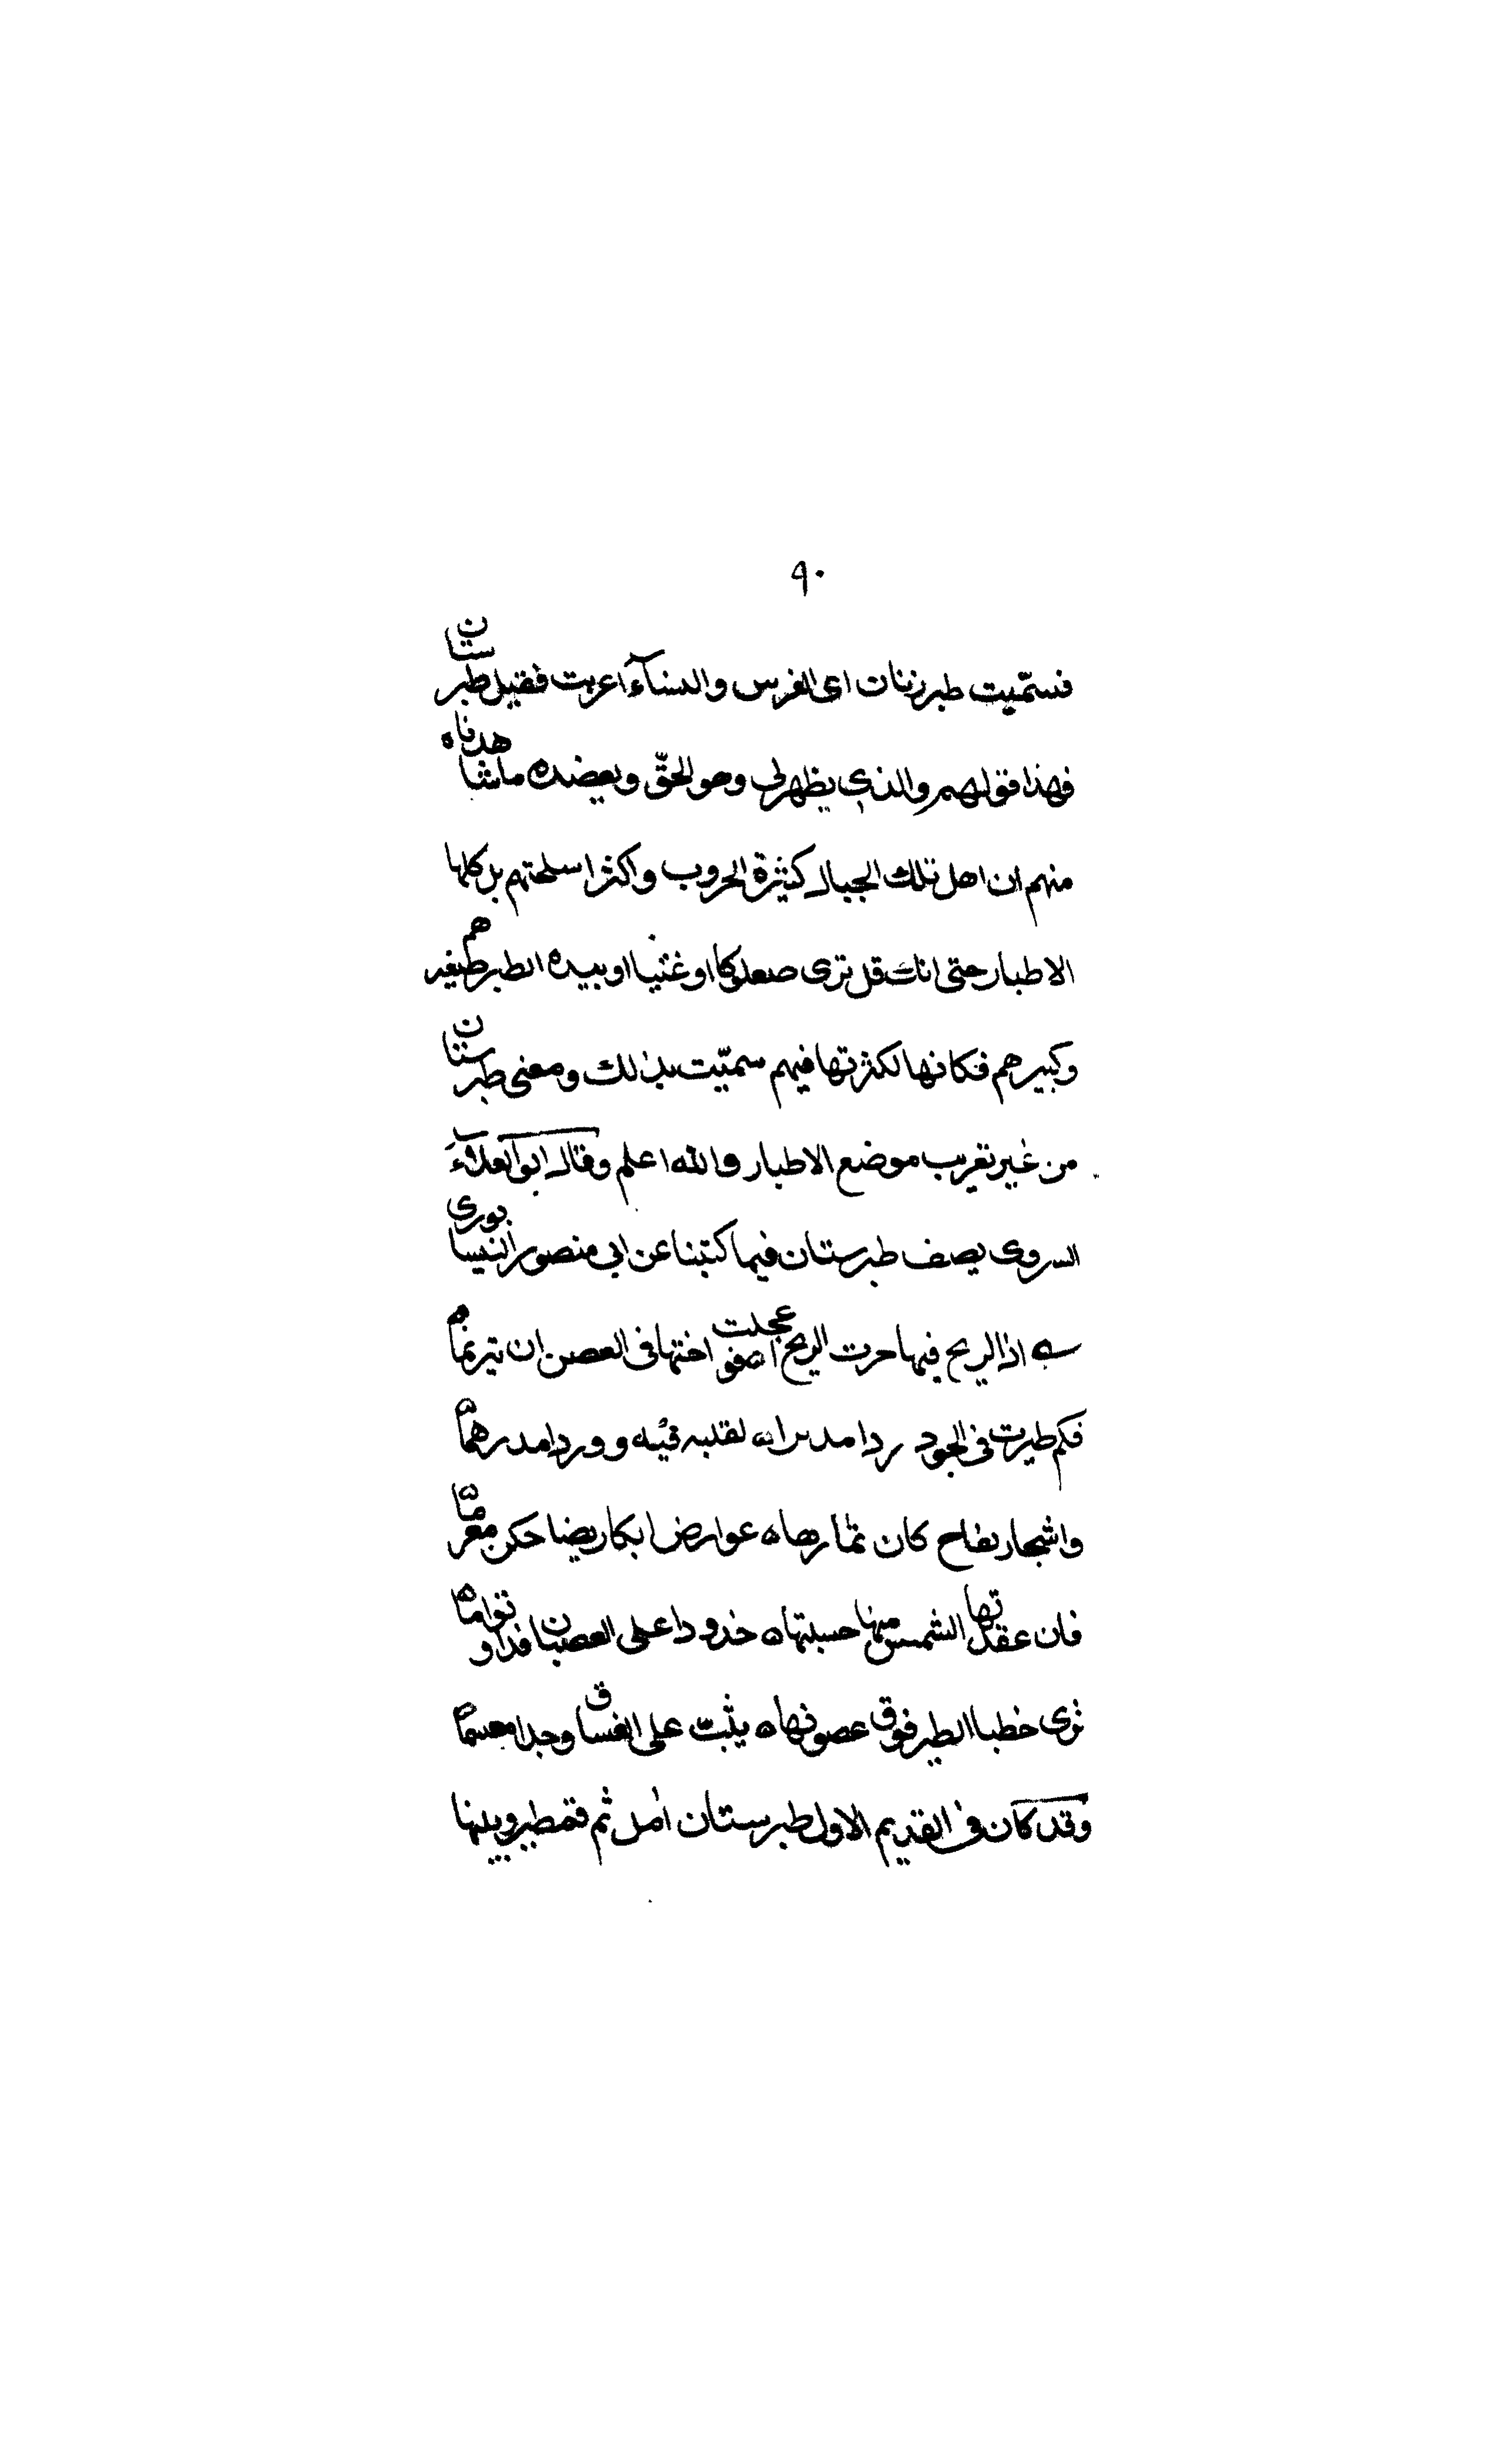 ٩٠
فسمّيت طبرزنان اى الفرس والنسآء اعربت فقيل طبرستان
فهذا قولهم والذي يظهر لي وهو الحقّ ويعضده ما شاهدناه
منهم ان اهل تلك الجبال كثيرة الحروب واكثر اسلحتهم بل كلها
الاطبار حتى انك قل ترى صعلوكا او غنيا او بيده الطبر صغيرهم
وكبيرهم فكانها لكثرتها فيهم سميّت بذلك ومعنى طبرستان
من غير تعريب موضع الاطبار والله اعلم وقال ابوا لعلآء
السروى يصف طبرستان فيما كتبنا عن ابي منصور النيسابورى
اذا الريح فيها جرت الريح اعجلت فو اختها فى الغصن ان تترنما
فكم طيرت فى الجود ردا مدنرا تقلبه فيه و وردا مدرهما
واشجار تفاح كان ثمارها عوارض ابكار يضاحكن مغرما
فان عقدتها الشمس منها حسبتها خدودا على القضبان فذا وتواما
ترى خطبا الطير فوق غصونها يثبّ على العساق وجدا معسما
وقد كان فى القديم الاول طبرستان امل ثم قمطير وبينها